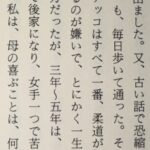 出ました。又、古い話で恐縮
も、毎日歩いて通った。そ
アッコはすべて一番、柔道が
るのが嫌いで、とにかく一生
だったが、三年〜五年は、
後家になり、女手一つで苦
私は、母の喜ぶことは、何